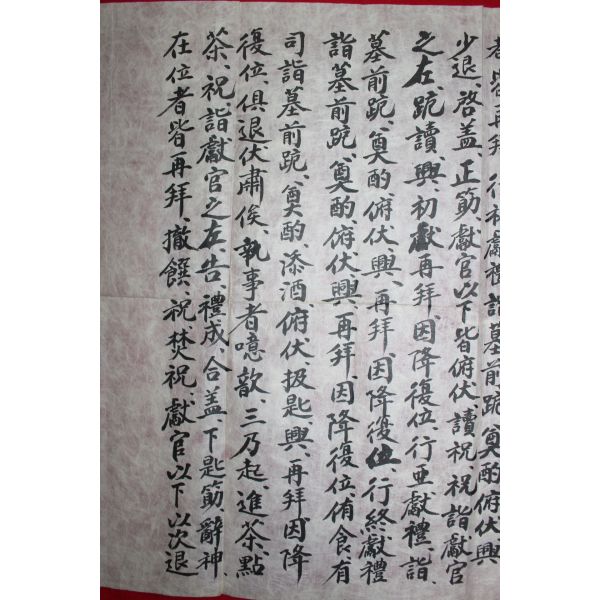 者皆再拜、行初獻禮、詣墓前跪、奠酌俯伏興
少退、啓盖、正筯、獻官以下皆俯伏、讀祝、祝詣獻官
之左、跪讀、興、初獻再拜、因降復位、行亞獻禮、詣、
墓前跪、奠酌俯伏、興、再拜、因降復位、行終獻禮
詣墓前跪、奠酌、俯伏、興、再拜、因降復位、侑食、有
司詣墓前跪、奠酌、添酒、俯伏、扱匙、興、再拜因降
復位、俱退伏肅俟、執事者噫歆、三乃起、進茶、點
茶、祝、詣獻官之左、告、禮成、合盖、下匙筯、辭神
在位者皆再拜、撤饌、祝、焚祝、獻官以下以次退